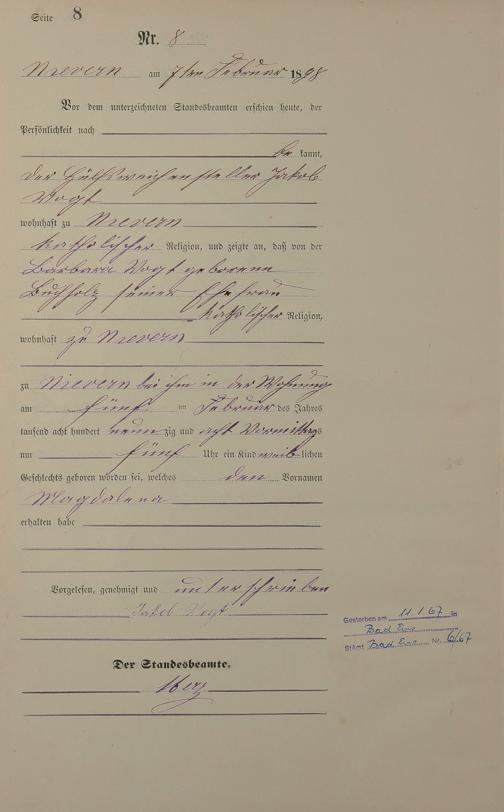 Seite 8
Nr. 8
Nievern am 7ten Februar 1898
Vor dem unterzeichneten Standesbeamten erschien heute, der
Persönlichkeit nach
be kannt,
der Hülfsweichensteller Jakob
Vogt
wohnhaft zu Nievern
katholischer Religion, und zeigte an, daß von der
Barbara Vogt geborenen
Buchholz seiner Ehefrau
katholischer Religion,
wohnhaft zu Nievern
zu Nievern bei ihm in der Wohnung
am fünf ten Februar des Jahres
tausend acht hundert neun zig und acht Vormittags
um fünf Uhr ein Kind weib lichen
Geschlechts geboren worden sei, welches den Vornamen
Magdalena
erhalten habe
Vorgelesen, genehmigt und unterschrieben
Jakob Vogt
Der Standesbeamte.
Gestorben am 11.1.67 in
Bad Ems
StAmt Bad Ems Nr. 6/67